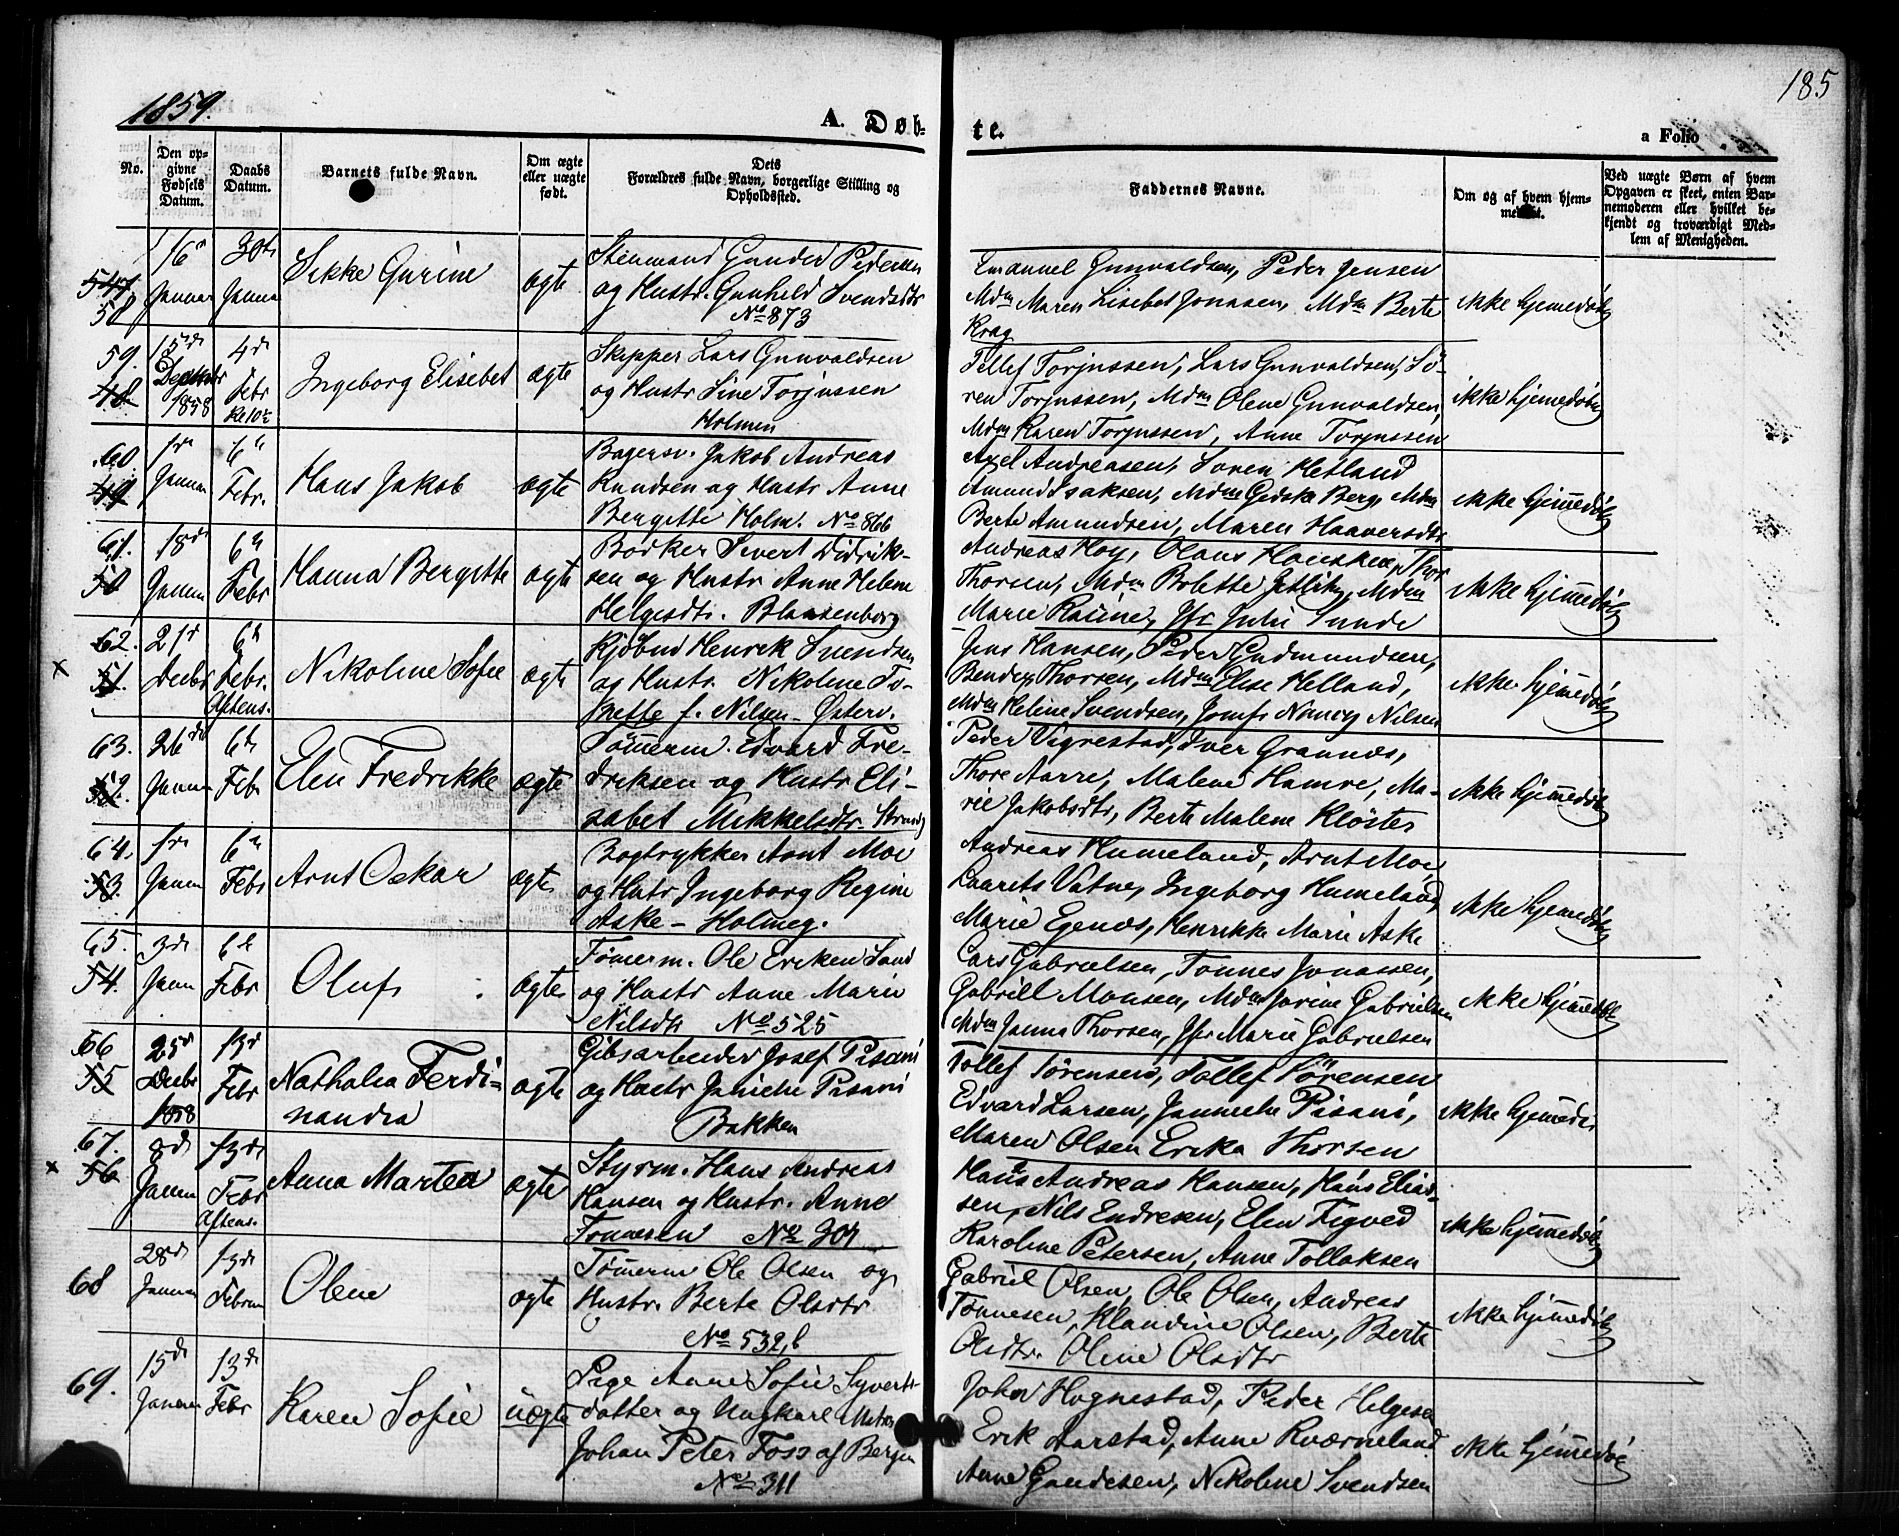 185
1859.
A. Døb-
te.
a Folio
No.
Den op-
givne
Fødsels
Datum.
Daabs
Datum.
Barnets fulde Navn.
Om ægte
eller uægte
født.
Dets
Forældres fulde Navn, borgerlige Stilling og
Opholdssted.
Faddernes Navne.
Om og af hvem hjem-
medøbt.
Ved uægte Børn af hvem
Opgaven er skeet, enten Bar-
nemoderen eller hvilket be-
kjendt og troværdigt Med-
lem af Menigheden.
58
16de
Januar
30te
Janua
Sikke Gurine
ægte
Stenmand Gunder Pedersen
og Hustr. Gunhild Svendsdtr
No 873
Emanuel Gunvaldsen, Peder Jensen
Mdm Maren Lisebet Jonasen, Mdm Berte
Krag
ikke hjemedøbt
59.
48.
15de
Decembr
1858
4de
Febr
Kl 10½
Ingeborg Elisebet
ægte
Skipper Lars Gunvaldsen
og Hustr Sine Torjussen
Holmen
Tellef Torjussen, Lars Gunvaldsen, Sö-
ren Torjussen, Mdm Olene Gunvaldsen,
Mdm Karen Torjussen, Anne Torjussen
ikke hjemedøbt
60.
49
1ste
Januar
6te
Febr.
Hans Jakob
ægte
Bagersv. Jakob Andreas
Knudsen og Hustr Anne
Bergitte Holm. No 866
Axel Andreasen, Soren Hetland
Amund Isaksen, Mdm Gidske Berg, Mdm
Berte Amundsen, Maren Haaversdtr
ikke hjemedøbt
61.
50
18de
Janua
6te
Febr
Hanna Bergitte
ægte
Bødker Sivert Didrik-
sen og Hustr Anne Helene
Helgesdtr. Blaasenborg
Andreas Hoy, Olaus Hausken, Thor
Thorsen, Mdm Bolette Jetlin, Mdm
Marie Racine, Jfr Julie Sunde
ikke hjemedøbt
62.
51.
21de
Decbr
6te
Febr.
Aftens.
Nikoline Sofie
ægte
Kjöbmd Henrik Svendsen
og Hustr. Nikoline To-
nette f. Nilsen - Østerv.
Jens Hansen, Peder Gudmundsen,
Bendix Thorsen, Mdm Elise Helland,
Mdm Heline Svendsen, Jomfr Nancy Nilsen
ikke hjemedøbt
63.
52.
26de
Januar
6te
Febr
Elen Fredrikke
ægte
Tømmerm Edvard Fre-
driksen og Hustr Eli-
sabet Mikkelsdtr.
Peder Vigrestad, Iver Grannæs,
Thore Aarre, Malene Hamre, Ma-
rie Jakobsdtr, Berte Malene Kloster
ikke hjemedøbt
64.
53.
1ste
Janua
6te
Febr
Arnt Oskar
ægte
Bogtrykker Arnt Moe
og Hustr Ingeborg Regine
Aske - Holmeg.
Andreas Humeland, Arnt Moe,
Laurits Vatne, Ingeborg Humeland
Marie Egenæs, Henrikke Marie Aske
ikke hjemedøbt
65.
54.
3de
Janu
6te
Febr
Oluf
ægte
Tømerm. Ole Eriksen Sand
og Hustr Anne Marie
Nilsdtr No 525
Lars Gabrielsen, Tonnes Jonassen,
Gabriel Monsen, Mdm Jorine Gabrielsen
Mdm Janna Thorsen, Jfr Marie Gabrielsen
ikke hjemedøbt
66
55
25de
Decbr
1858
13de
Febr
Nathalia Ferdi-
nandra
ægte
Gibsarbeider Josef Pisani
og Hustr Janiche Pisani
Bakken
Tollef Sørensen, Tollef Sörensen
Edvard Larsen, Janneche Pisani,
Maren Olsen Erika Thorsen
ikke hjemedø
67.
56
8de
Janua
13de
Febr
Aftens.
Anna Martea
ægte
Styrm. Hans Andreas
Hansen og Hustr. Anne
Tonnesen No 301
Hans Andreas Hansen, Hans Elias-
sen, Nils Endresen, Elen Tigved
Karoline Petersen, Anne Tollaksen
ikke hjemedøbt
68
28de
Januar
13de
Februar
Olene
ægte
Tømerm Ole Olsen og
Hustr. Berte Olsdtr
No 532,b
Gabriel Olsen, Ole Olsen, Andreas
Tönnesen, Klandine Olsen, Berte
Olsdtr. Oline Olsdtr
ikke hjemedøbt
69.
15de
Januar
13de
Febr
Karen Sofie
uægte
Pige Anne Sofie Syverts-
datter og Ungkarl Matros
Johan Peter Foss af Bergen
No 311
Johan Hognestad, Peder Helgesen
Erik Aarstad, Anne Kværneland
Anne Gaudesen, Nikoline Svendsen
ikke hjemedø